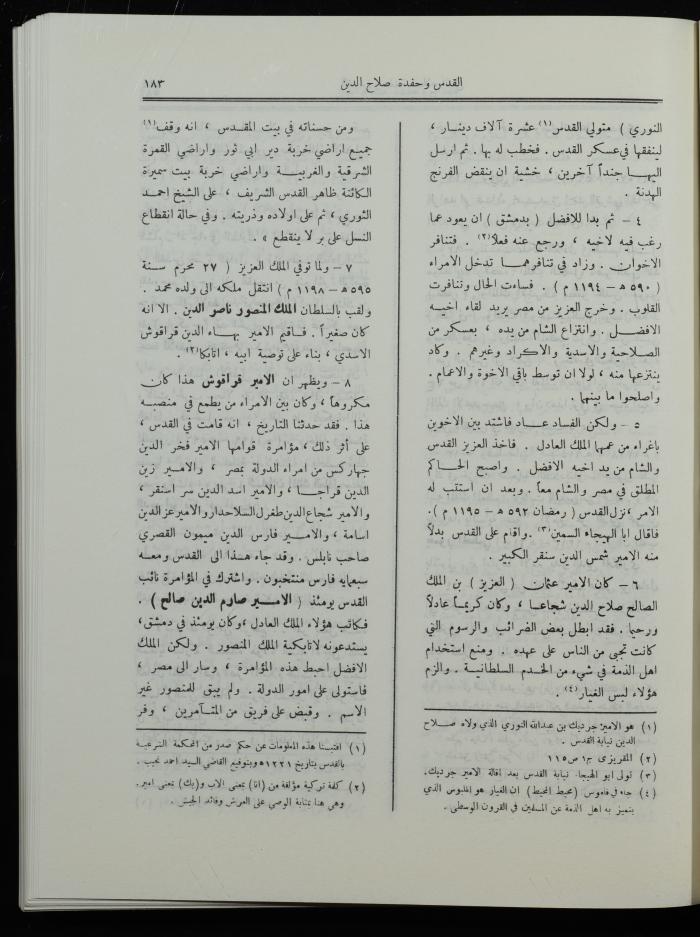 القدس وحفدة صلاح الدين
١٨٣
النوري ) متولي القدس(١) عشرة آلاف دينار ،
لينفقها في عسكر القدس . فخطب له بها . ثم ارسل
اليها جنداً آخرين ، خشية ان ينقض الفرنج
الهدنة .
٤ – ثم بدا للافضل ( بدمشق ) ان يعود عما
رغب فيه لاخيه ، ورجع عنه فعلاً(٢) . فتنافر
الاخوان . وزاد في تنافرهما تدخل الامراء
( ٥٩٠ هـ – ١١٩٤ م ) . فساءت الحال وتنافرت
القلوب . وخرج العزيز من مصر يريد لقاء اخيه
الافضل . وانتزاع الشام من يده ، بعسكر من
الصلاحية والأسدية والأكراد وغيرهم . وكاد
ينتزعها منه ، لولا ان توسط باقي الاخوة والاعمام .
واصلحوا ما بينهما .
٥ – ولكن الفساد عاد فاشتد بين الاخوين
باغراء من عمهما الملك العادل . فاخذ العزيز القدس
والشام من يد اخيه الافضل . واصبح الحاكم
المطلق في مصر والشام معاً . وبعد ان استتب له
الامر ، نزل القدس ( رمضان ٥٩٢ هـ – ١١٩٥ م ) .
فاقال ابا الهيجاء السمين(٣) . واقام على القدس بدلاً
منه الامير شمس الدين سنقر الكبير .
٦ – كان الامير عثمان ( العزيز ) بن الملك
الصالح صلاح الدين شجاعا ، وكان كريماً عادلاً
ورحيما . فقد ابطل بعض الضرائب والرسوم التي
كانت تجبى من الناس على عهده . ومنع استخدام
اهل الذمة في شيء من الخدم السلطانية . والزم
هؤلاء لبس الغيار(٤) .
(١) هو الامير جرديك بن عبدالله النوري الذي ولاه صلاح
الدين نيابة القدس .
(٢) المقريزي ج١ ص ١١٥
(٣) تولى ابو الهيجاء نيابة القدس بعد اقالة الامير جرديك.
(٤) جاء في قاموس (محيط المحيط) ان الغيار هو الملبوس الذي
يتميز به اهل الذمة عن المسلمين في القرون الوسطى .
ومن حسناته في بيت المقدس ، انه وقف(١)
جميع اراضي خربة دير ابي ثور واراضي القمرة
الشرقية والغربية واراضي خربة بيت سميرة
الكائنة ظاهر القدس الشريف ، على الشيخ احمد
الثوري ، ثم على اولاده وذريته . وفي حالة انقطاع
النسل على بر لا ينقطع » .
٧ – ولما توفي الملك العزيز ( ٢٧ محرم سنة
٥٩٥ هـ – ١١٩٨ م ) انتقل ملكه الى ولده محمد .
ولقب بالسلطان الملك المنصور ناصر الدين . الا انه
كان صغيراً . فاقيم الامير بهاء الدين قراقوش
الاسدي ، بناء على توصية ابيه ، اتابكا(٢) .
٨ – ويظهر ان الامير قراقوش هذا كان
مكروهاً ، وكان بين الامراء من يطمع في منصبه
هذا . فقد حدثنا التاريخ ، انه قامت في القدس ،
على أثر ذلك ، مؤامرة قوامها الامير فخر الدين
جهاركس من امراء الدولة بمصر ، والامير زين
الدين قراجا ، والامير اسد الدين سر اسنقر ،
والامير شجاع الدين طغرل السلاحدار والامير عز الدين
اسامة ، والامير فارس الدين ميمون القصري
صاحب نابلس . وقد جاء هذا الى القدس ومعه
سبعمايه فارس منتخبون . واشترك في المؤامرة نائب
القدس يومئذ ( الامير صارم الدين صالح ) .
فكاتب هؤلاء الملك العادل ، وكان يومئذ في دمشق ،
يستدعونه لاتابكية الملك المنصور . ولكن الملك
الافضل احبط هذه المؤامرة ، وسار الى مصر ،
فاستولى على امور الدولة . ولم يبق للمنصور غير
الاسم . وقبض على فريق من المتآمرين ، وفر
(١) اقتبسنا هذه المعلومات عن حكم صدر من المحكمة الشرعية
بالقدس بتاريخ ١٢٢١هـ وبتوقيع القاضي السيد احمد نجيب .
(٢) كلمة تركية مؤلفة من (اتا) بمعنى الاب و(بك) بمعنى امير.
وهي هنا بمثابة الوصي على العرش وقائد الجيش .